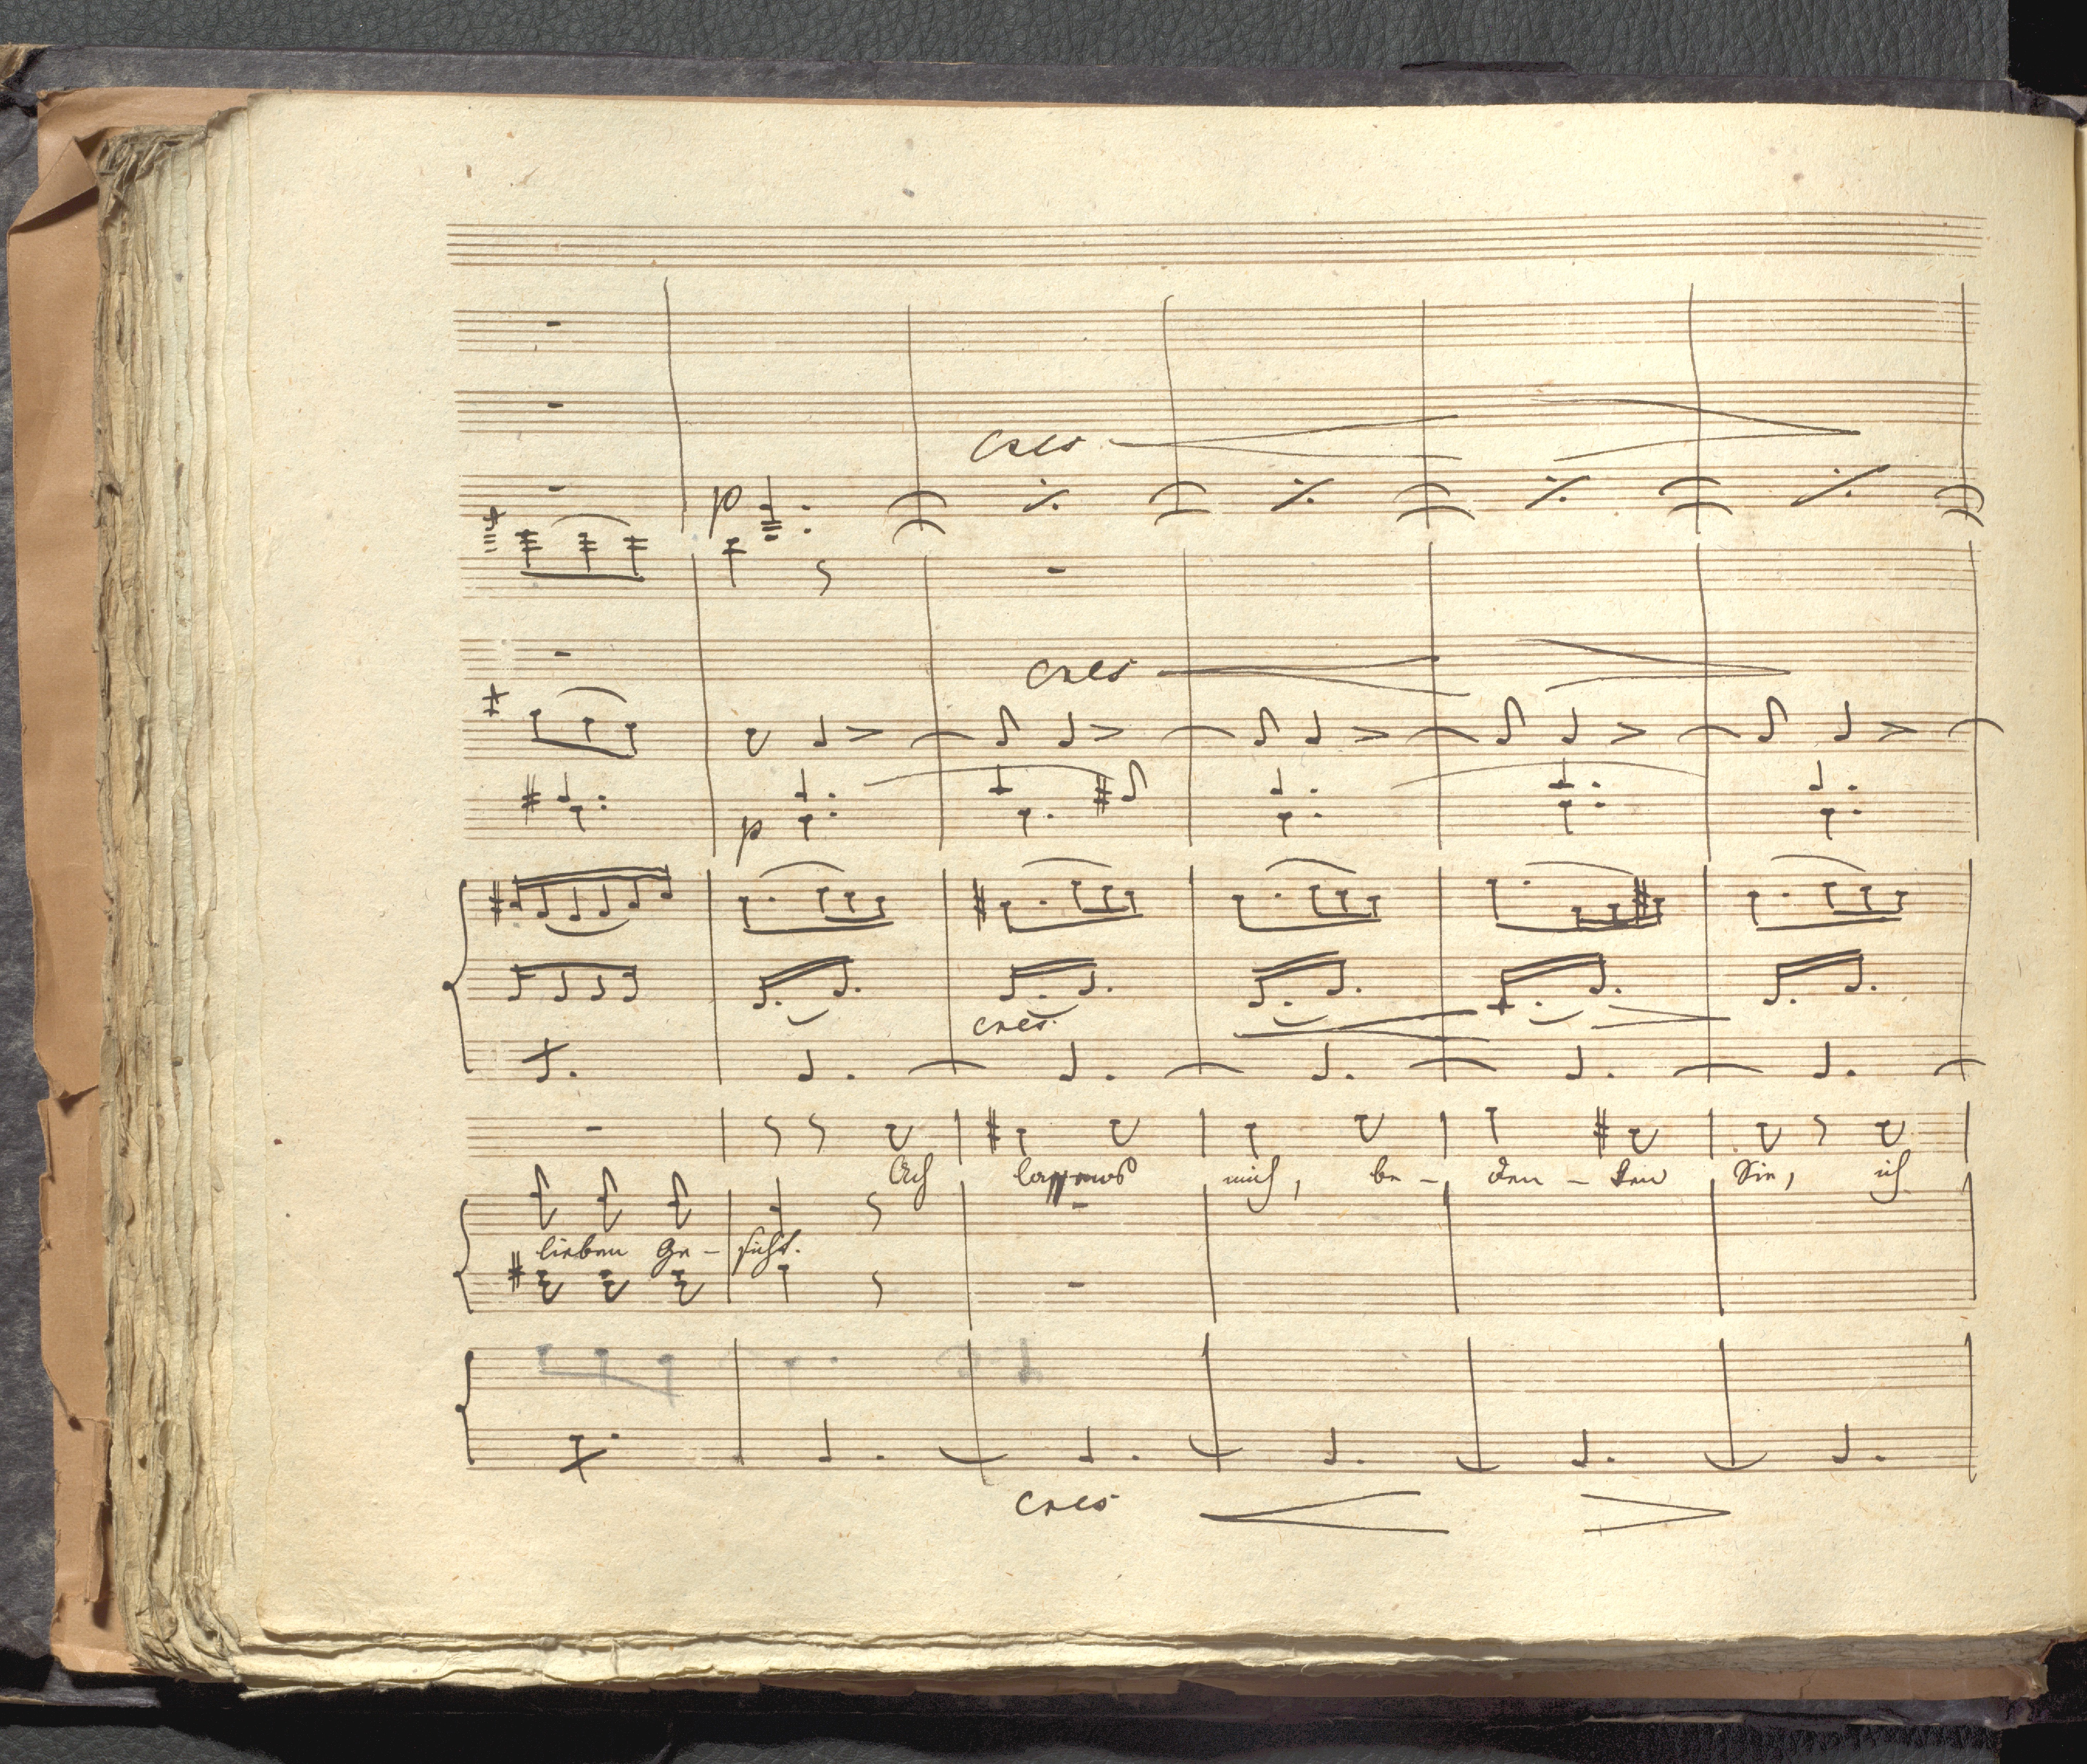 cres
p
cres
p
cres.
Ach lassens mich, be - den - ken Sie, ich
lieben Ge - sicht.
cres